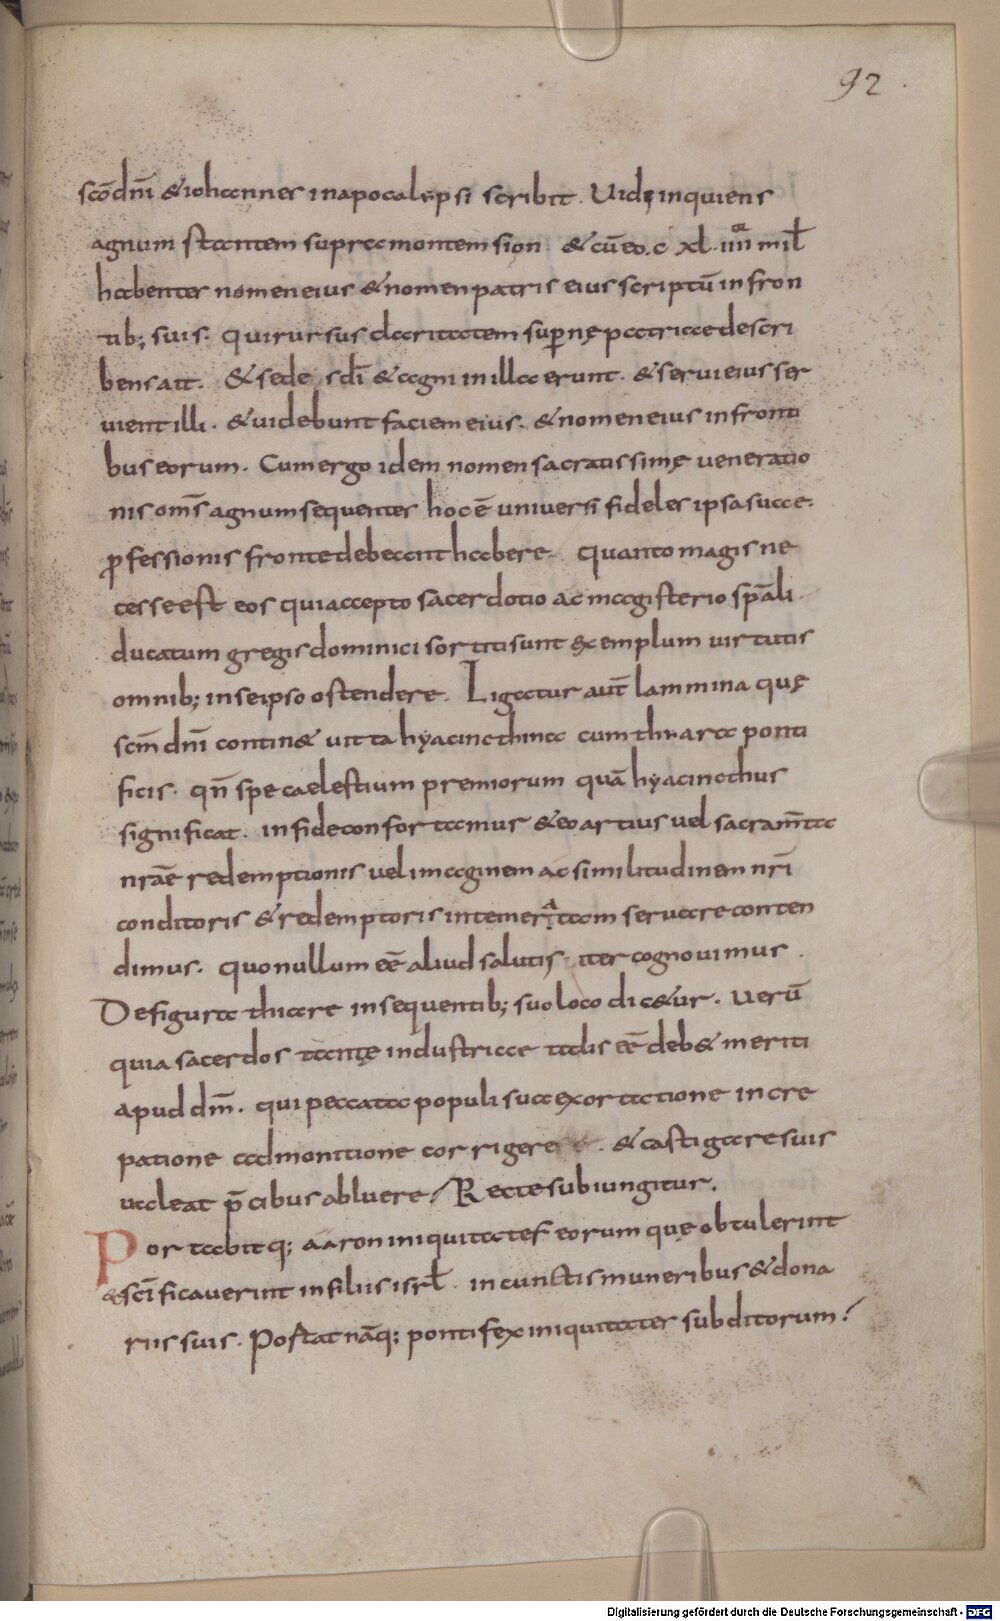 92
scō dn̄i & iohannes in apocalypsi scribit. Uide inquiens
agnum stantem supra montem sion. & cū eo. c xl. iiii mił
habentes nomen eius & nomen patris eius scriptū in fron
tib; suis. Qui rursus claritatem supernę patriae descri
bens ait. & sedes dī & agni in illa erunt. & serui eius ser
uient illi. & uidebunt faciem eius. & nomen eius in fronti
bus eorum. Cum ergo idem nomen sacratissimę ueneratio
nis oms̄ agnum sequentes hoc ē uniuersi fideles ipsa suae
ꝓfessionis fronte debeant habere. Quanto magis ne
cesse est eos qui accepto sacerdotio ac magisterio sp̄ali
ducatum gregis dominici sortiti sunt exemplum uirtutis
omnib; in se ipso ostendere. Ligatur aut̄ lammina quę
scm̄ dn̄i contin& uitta hyacinthina cum thiara ponti
ficis. qn̄ spe caelestium premiorum quā hyacincthus
significat. in fide confortamur & eo artius uel sacram̄ta
nrāe redemptionis uel imaginem ac similitudinem nr̄i
conditoris & redemptoris intemeratam seruare conten
dimus. quo nullum eē aliud salutis iter cognouimus.
De figura thiare in sequentib; suo loco dic&ur. Uerū
quia sacerdos tantę industriae talis eē deb& meriti
apud dm̄. qui peccata populi sua exortatione incre
patione admonitione corrigere. & castigare suis
ualeat p̄cibus abluere / Recte subiungitur.
Portabitq; aaron iniquitates eorum quę obtulerint
& scī ficauerint in filiis isrł. in cunctis muneribus & dona
riis suis. Postat nāq; pontifex iniquitates subditorum /
Digitalisierung gefördert durch die Deutsche Forschungsgemeinschaft - DFG